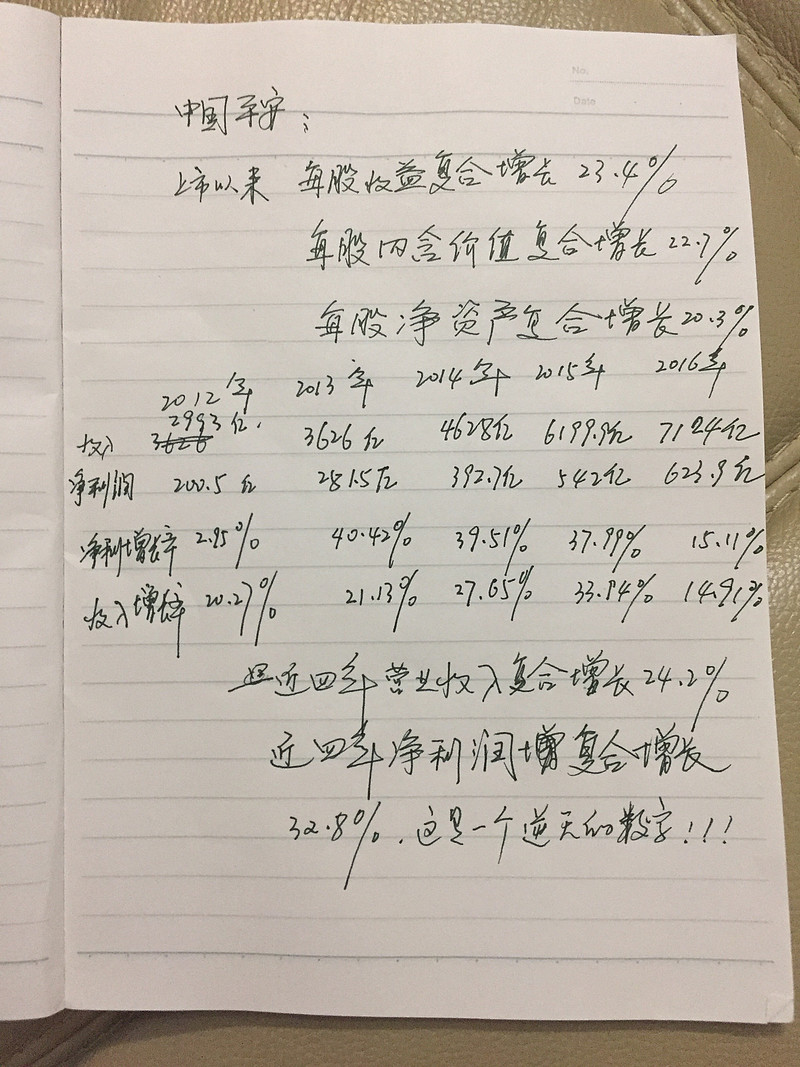 No.
Date
中国平安：
上市以来 每股收益复合增长 23.4%
每股内含价值复合增长 22.7%
每股净资产复合增长 20.3%
2012年 2013年 2014年 2015年 2016年
2993亿.
收入 3626 3626亿 4628亿 6199.9亿 7124亿
净利润 200.5亿 281.5亿 392.7亿 542亿 623.9亿
净利增长率 2.95% 40.42% 39.51% 37.99% 15.11%
收入增长率 20.27% 21.13% 27.65% 33.94% 14.91%
近四年营业收入复合增长 24.2%
近四年净利润增复合增长
32.8%，这是一个逆天的数字！！！